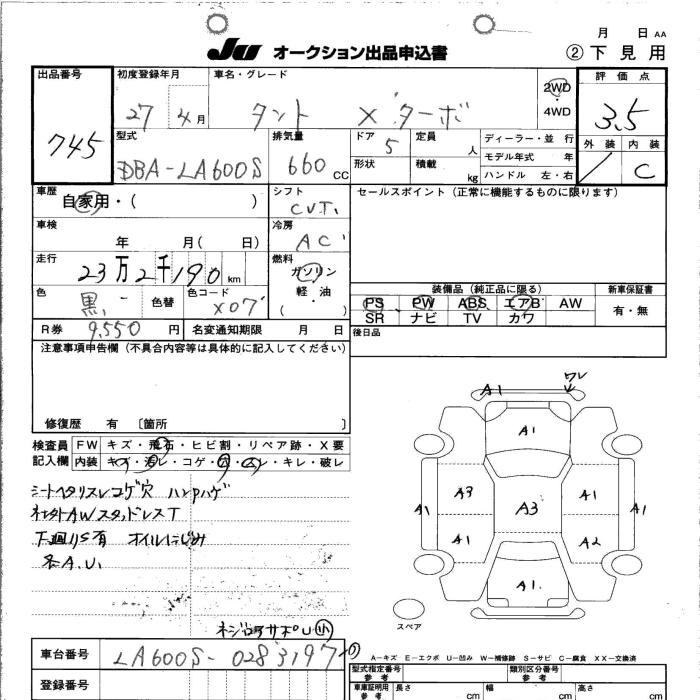 月 日 AA
JU オークション出品申込書 ② 下見用
出品番号 初度登録年月 車名・グレード 評価点
745 27 4月 タント X ターボ 2WD・4WD 3.5
型式 排気量 ドア 定員 ディーラー・並行 外装 内装
DBA-LA600S 660 CC 5 人 モデル年式 年 C
形状 積載 kg ハンドル 左・右
車歴 シフト セールスポイント (正常に機能するものに限ります)
自家用・( ) CVT
車検 冷房
年 月( 日) AC
走行 燃料
23万2千190km ガソリン
色 色替 色コード 軽・油
黒 X07 ( ・ )
装備品 (純正品に限る) 新車保証書
PS PW ABS エアB AW 有・無
SR ナビ TV カワ
R券 9,550円 名変通知期限 月 日 後日品
注意事項申告欄 (不具合内容等は具体的に記入してください)
修復歴 有 〔箇所 〕
検査員 FW キズ・飛石・ヒビ割・リペア跡・X要
記入欄 内装 キズ・汚レ・コゲ・穴・ムレ・キレ・破レ
シートヘタリスレコゲ穴 ハンドハゲ
社外AWスタッドレスT
下廻りS有 オイルにじみ
各A.U.
A1 ワレ
A1
A3 A1
A1 A3 A1
A1 A2
A1
スペア
車台番号 LA600S-0283197
登録番号
A-キズ E-エクボ U-凹み W-補修跡 S-サビ C-腐食 XX-交換済
型式指定番号 参考 類別区分番号 参考
車庫証明用 参考 長さ cm 幅 cm 高さ cm